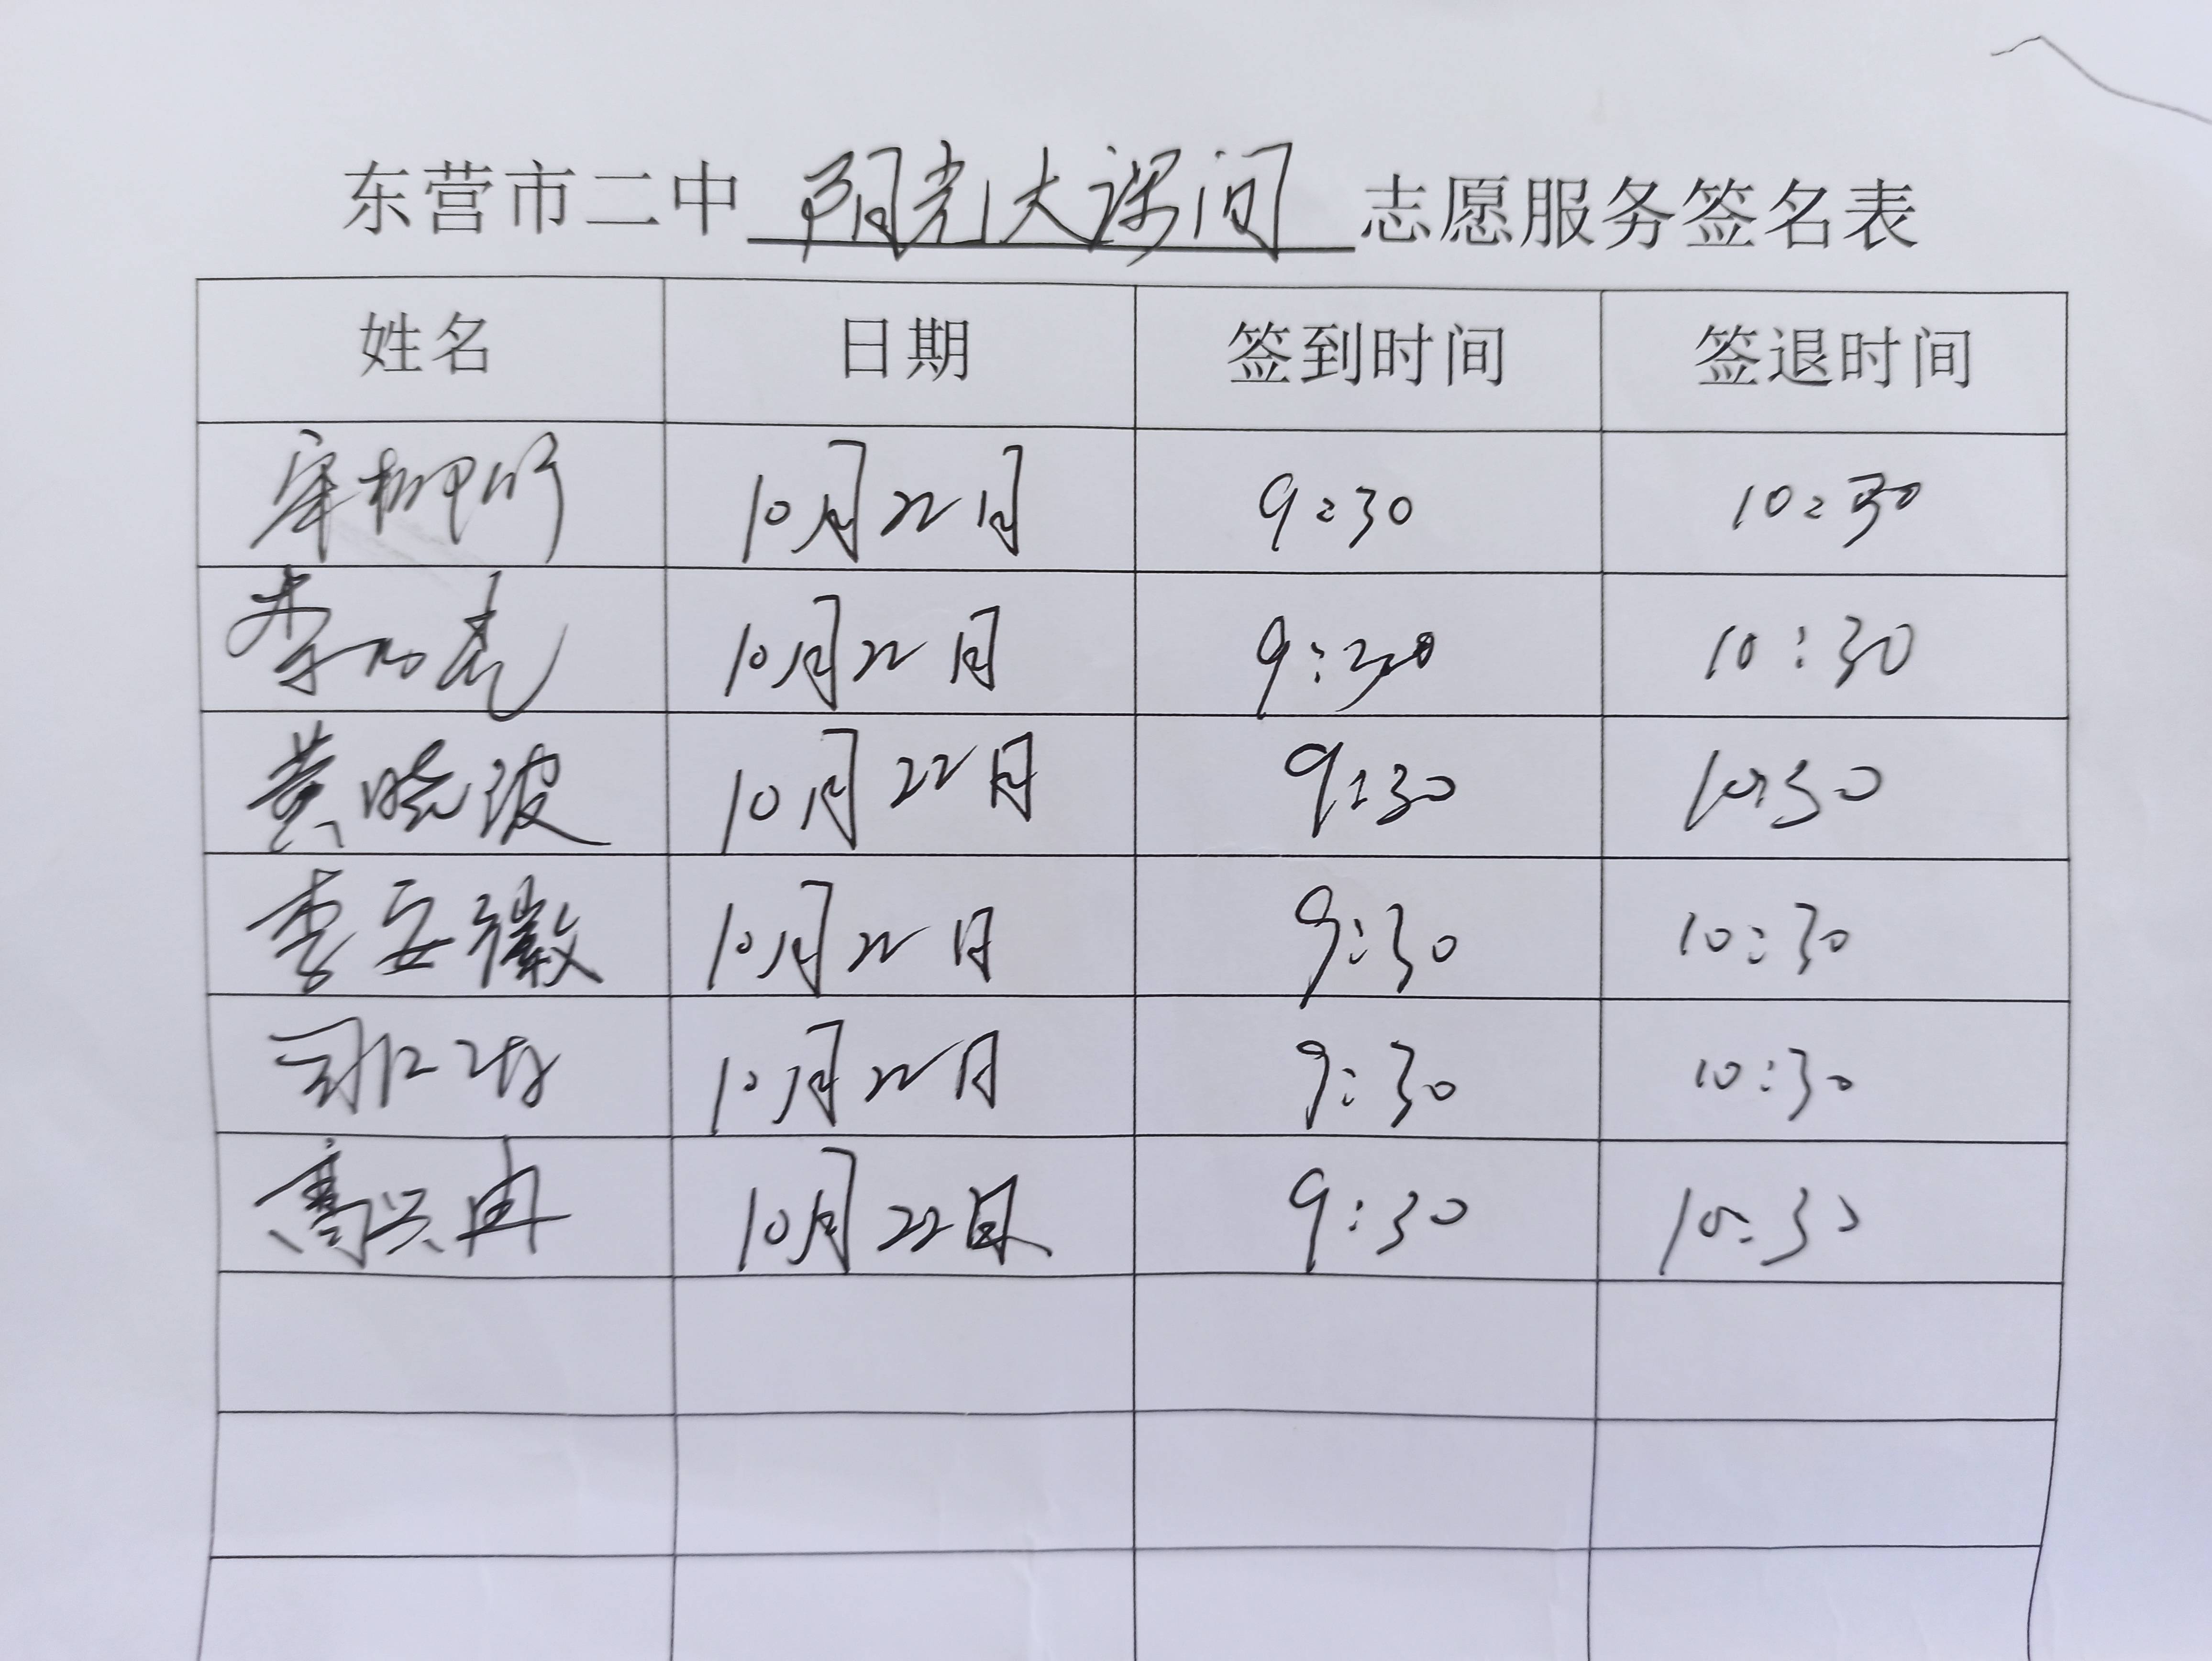 东营市二中 阳光大课间 志愿服务签名表
姓名 日期 签到时间 签退时间
10月22日 9:30 10:30
李 亮 10月22日 9:30 10:30
黄晓波 10月22日 9:30 10:30
李安徽 10月22日 9:30 10:30
10月22日 9:30 10:30
高兴冉 10月22日 9:30 10:30